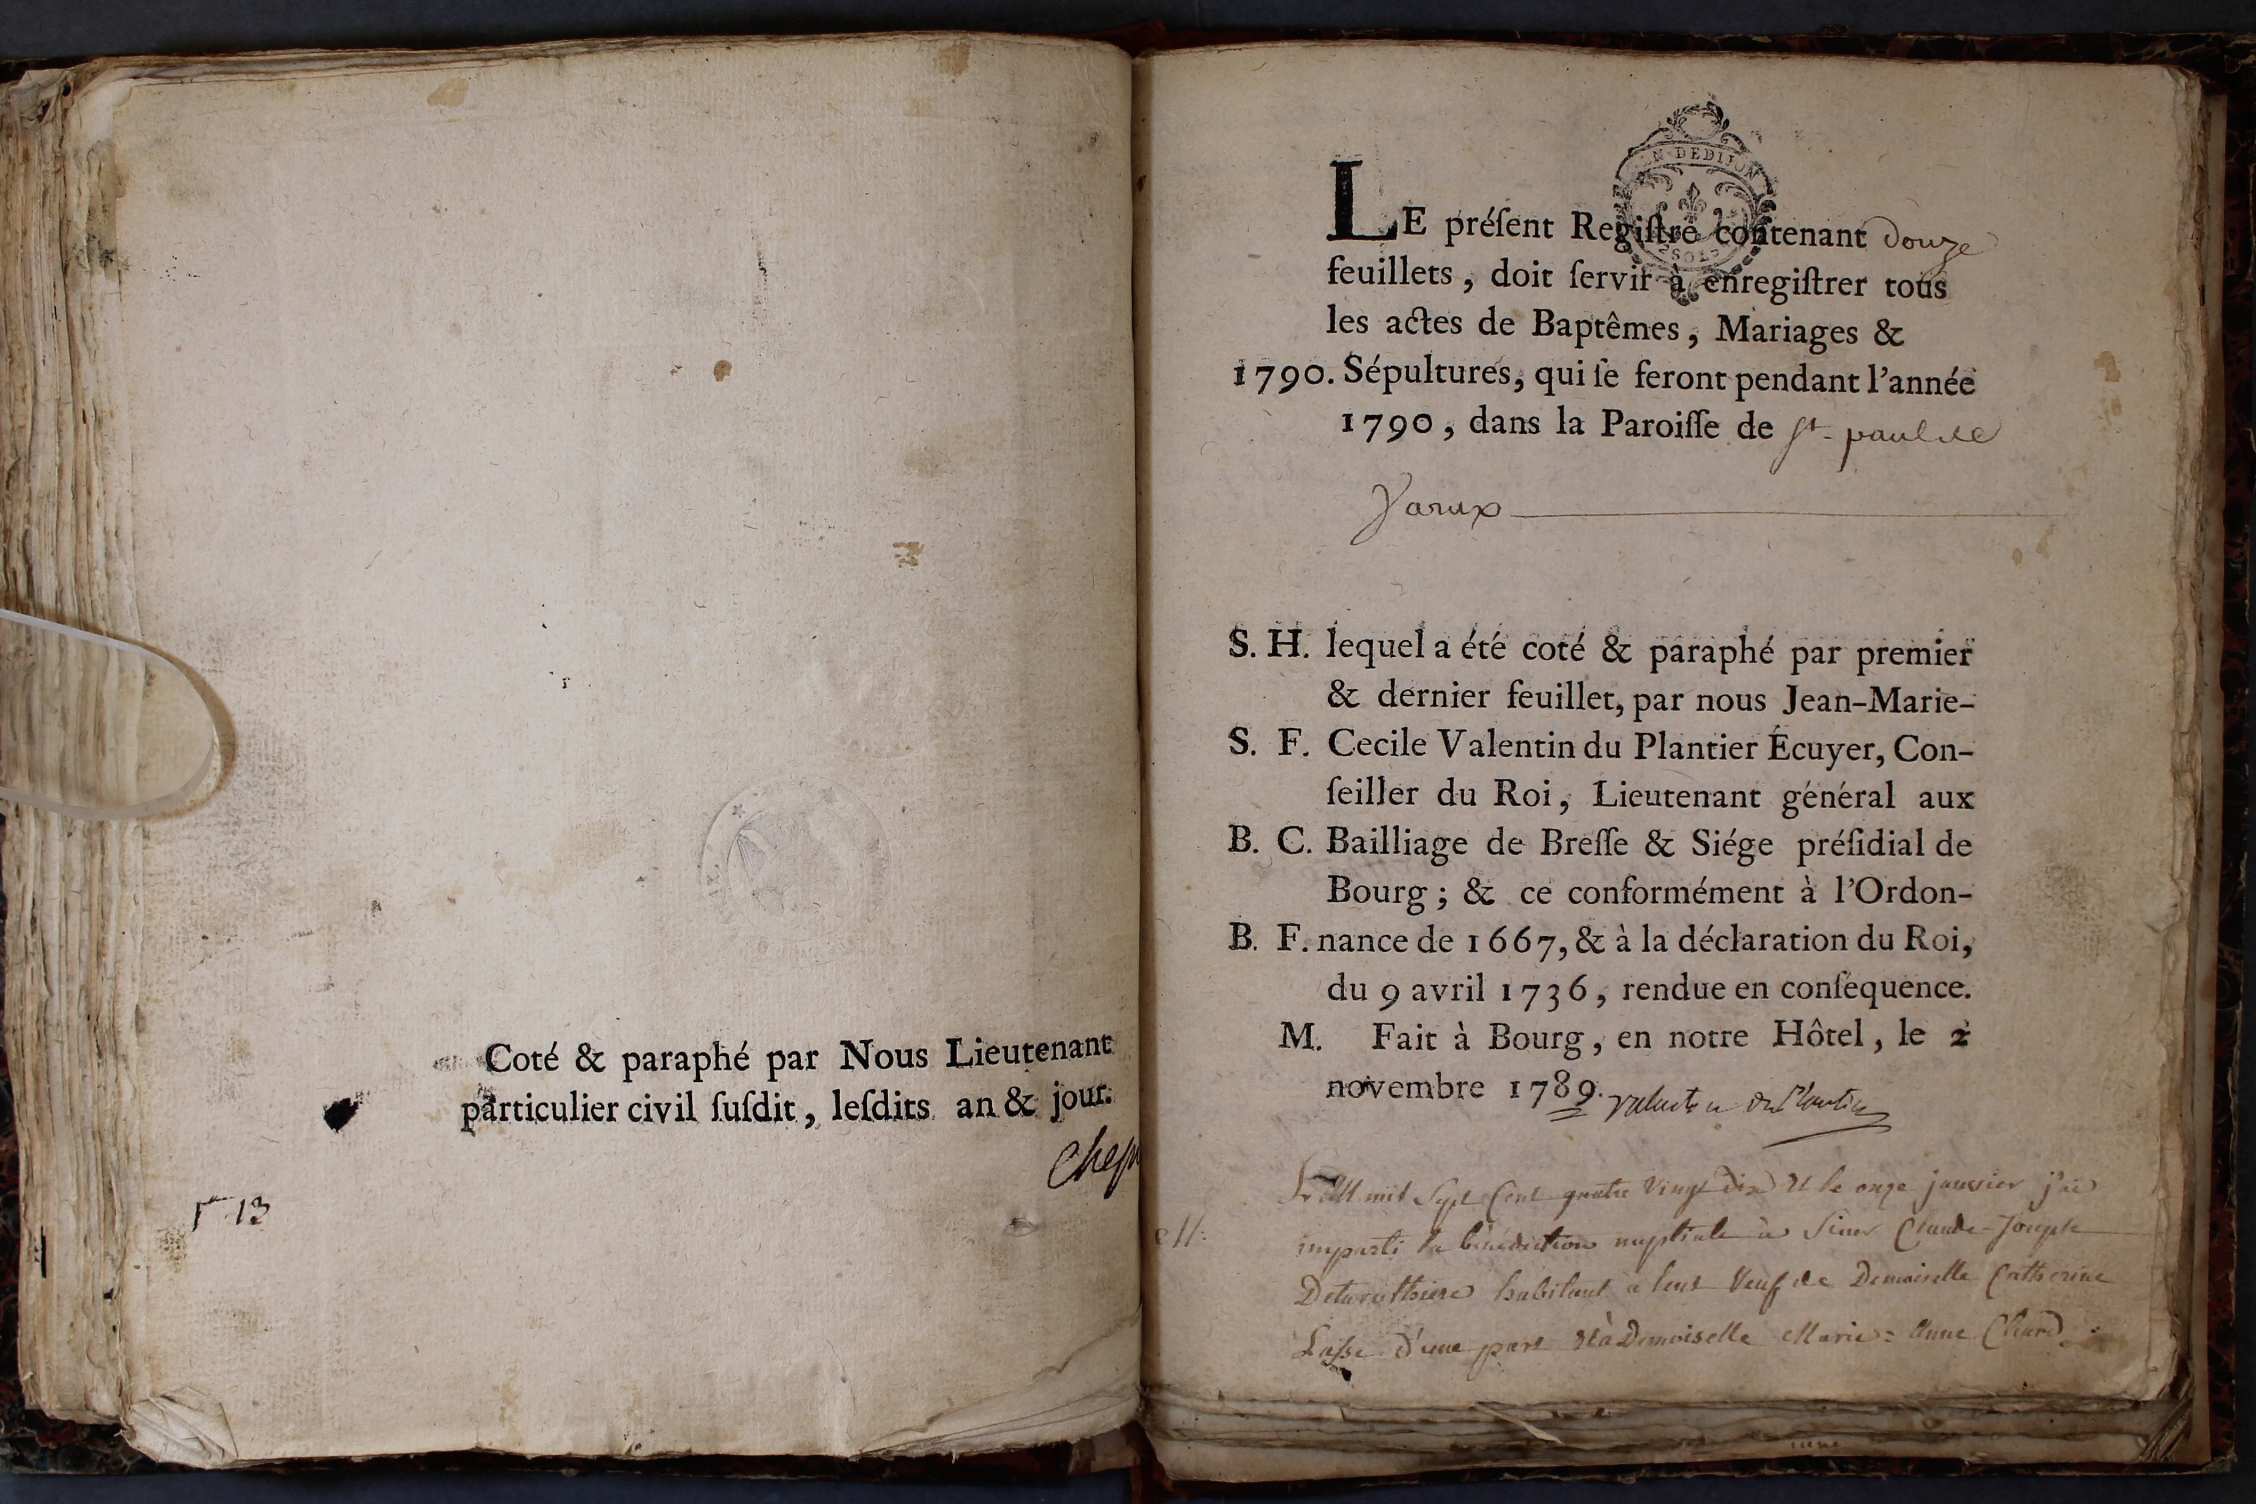 Coté & paraphé par Nous Lieutenant
particulier civil ſuſdit, leſdits an & jour.
Chep
13
N DE DIJON
SOLS
LE préſent Regiſtre contenant douze
feuillets, doit ſervir à enregiſtrer tous
les actes de Baptêmes, Mariages &
1790. Sépultures, qui ſe feront pendant l'année
1790, dans la Paroiſſe de St. paul de
Varux
S. H. lequel a été coté & paraphé par premier
& dernier feuillet, par nous Jean-Marie-
S. F. Cecile Valentin du Plantier Écuyer, Con-
ſeiller du Roi, Lieutenant général aux
B. C. Bailliage de Breſſe & Siége préſidial de
Bourg; & ce conformément à l'Ordon-
B. F. nance de 1667, & à la déclaration du Roi,
du 9 avril 1736, rendue en conſequence.
M. Fait à Bourg, en notre Hôtel, le 2
novembre 1789. Valentin du Plantier
L'an mil Sept Cent quatre Vingt dix et le onze janvier j'ai
imparti la bénédiction nuptiale à Sieur Claude-Joseph
habitant a Veuf de Demoiselle Catherine
d'une part et à Demoiselle Marie=Anne